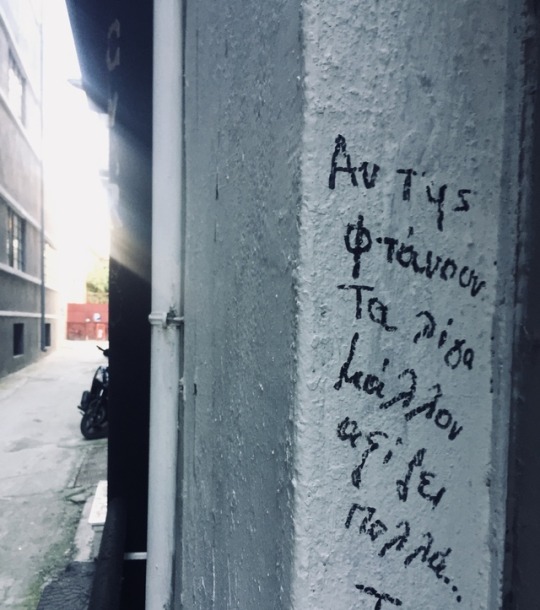 Αν της
φτάνουν
Τα λίγα
μάλλον
αξίζει
πολλά...
Τ